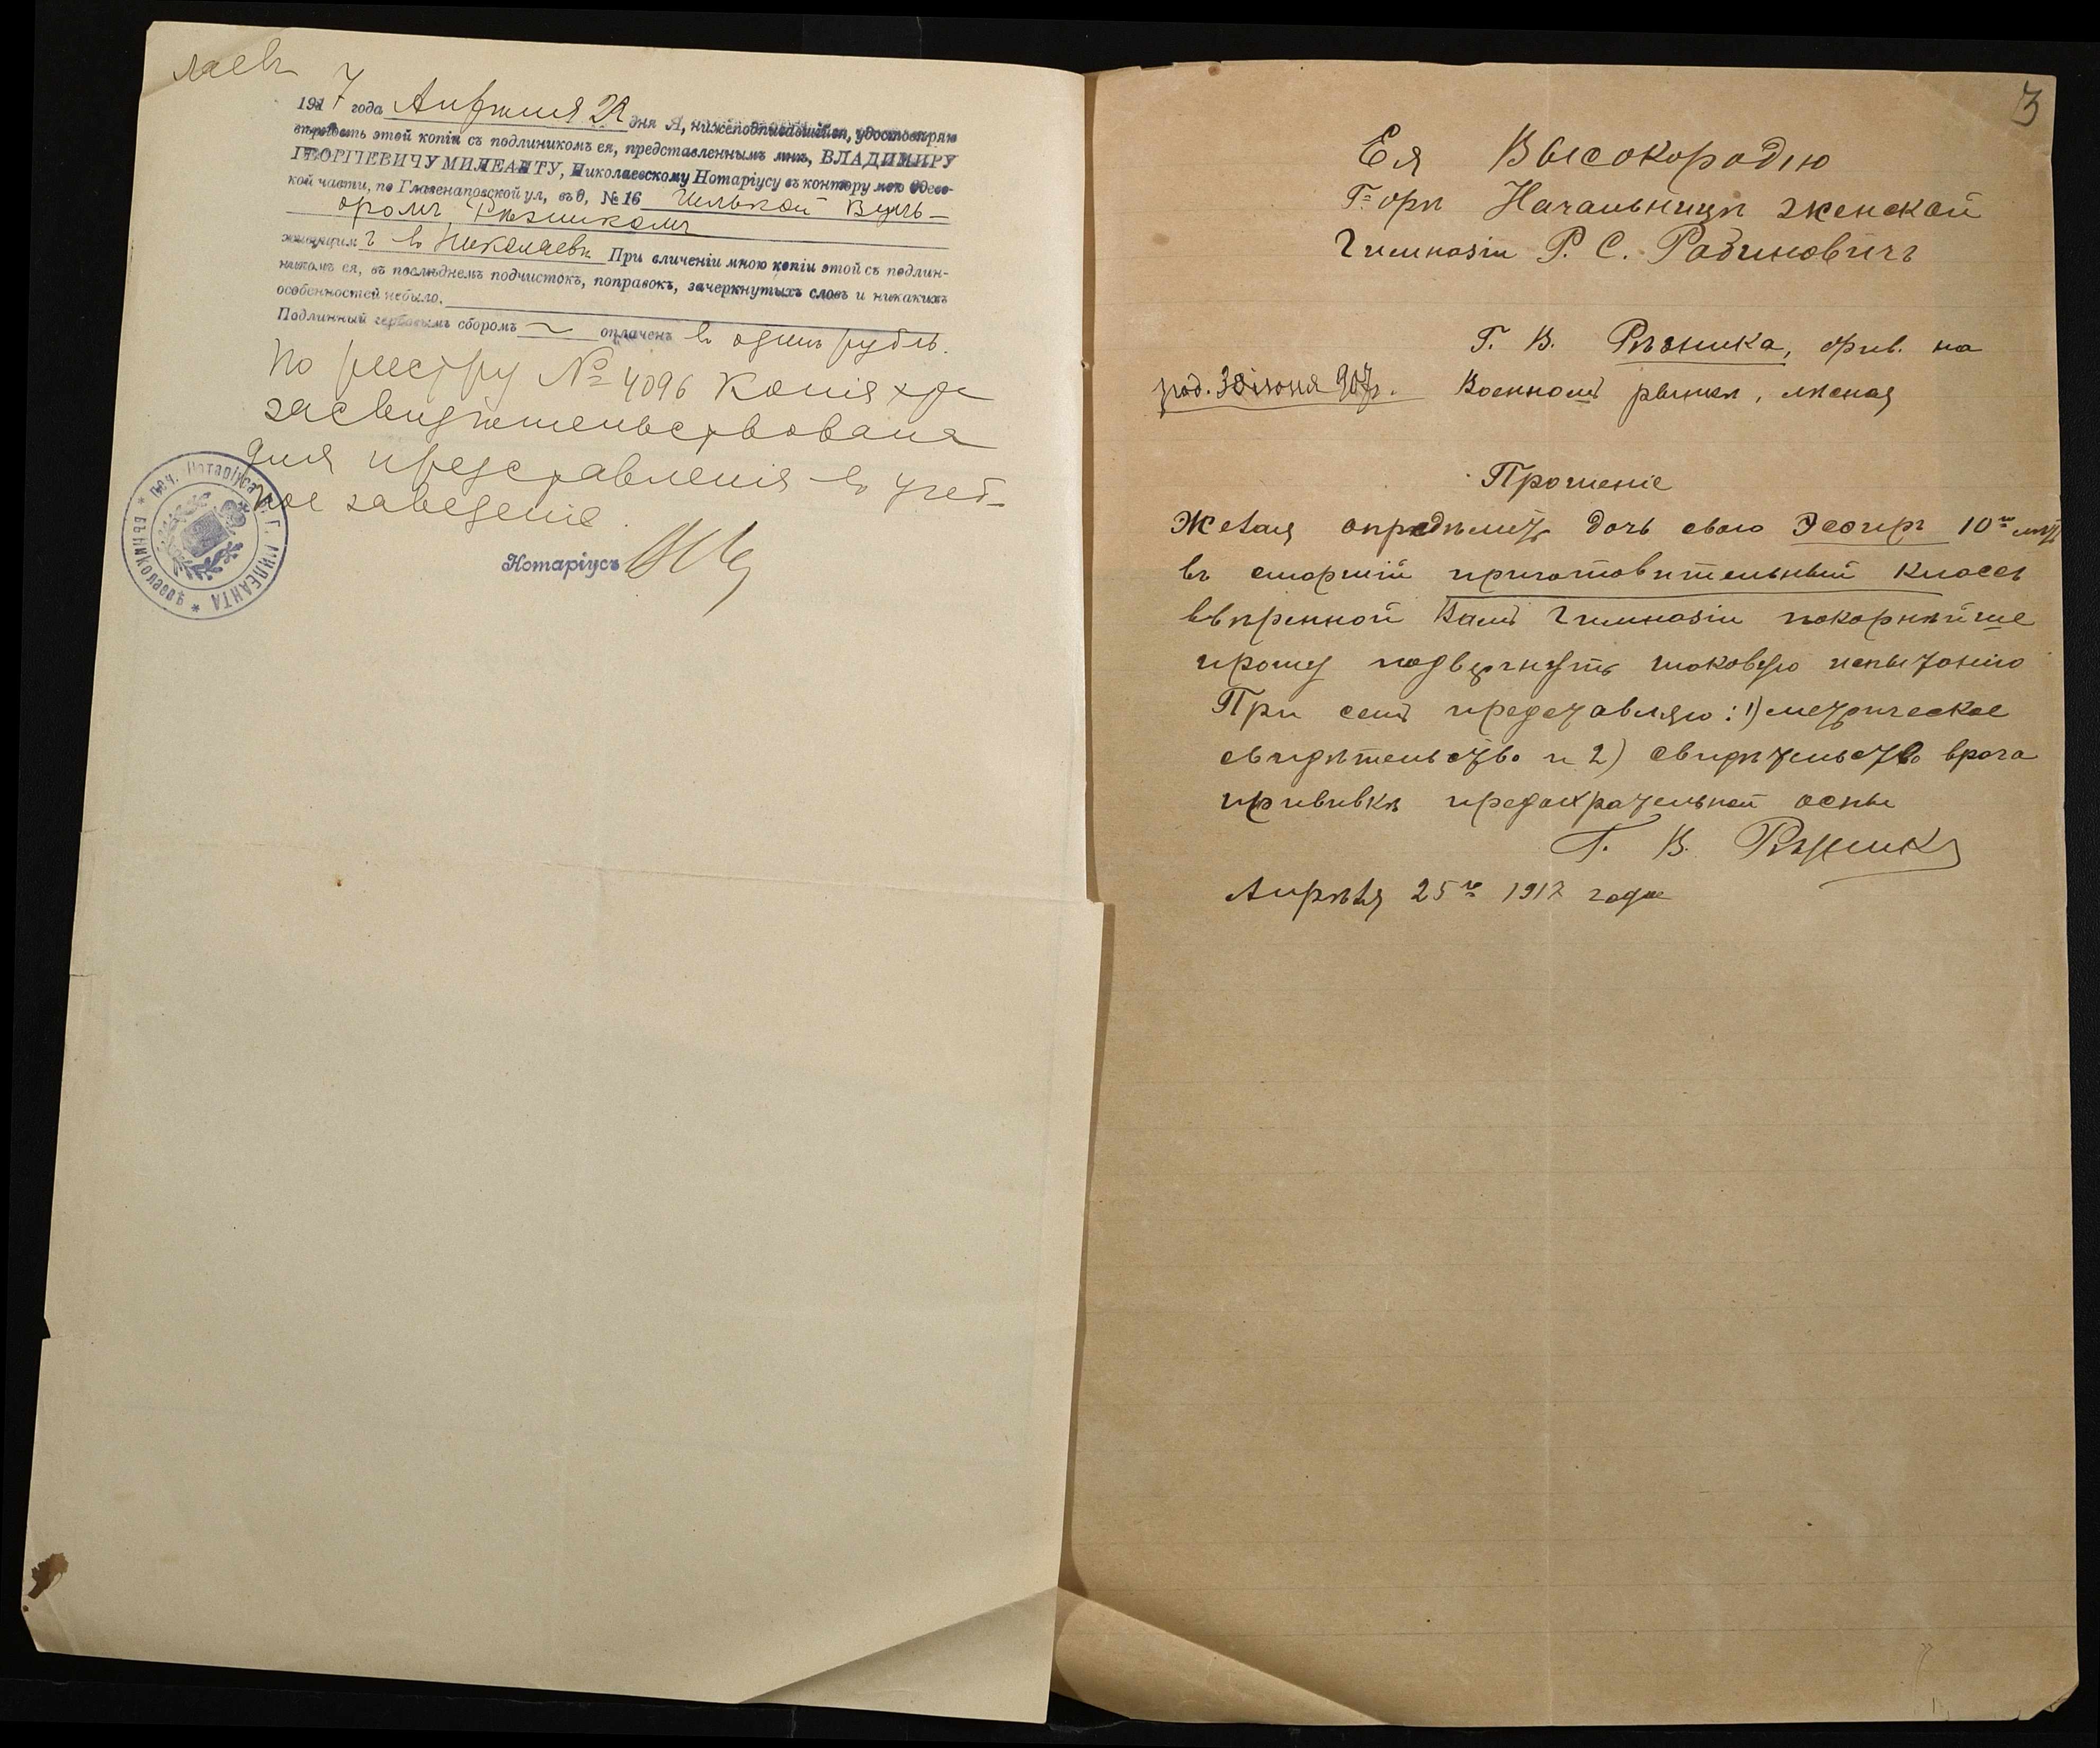 лаевѣ
1917 года Апрѣля 21 дня Я, нижеподписавшійся, удостовѣряю
вѣрность этой копіи съ подлиникомъ ея, представленнымъ мнѣ, ВЛАДИМИРУ
ГЕОРГІЕВИЧУ МИЛЕАНТУ, Николаевскому Нотаріусу въ контору мою Одесс-
кой части, по Глазенаповской ул, въ д, № 16 Гилькой Вуль-
фомъ Рѣзникомъ
живущимъ въ Николаевѣ При сличеніи мною копіи этой съ подлин-
никомъ ея, въ послѣднемъ подчистокъ, поправокъ, зачеркнутыхъ словъ и никакихъ
особенностей небыло.
Подлинный гербовымъ сборомъ оплаченъ въ одинъ рубль.
По реестру № 4096 Копія
засвидѣтельствована
для представленія въ учеб-
ное заведеніе.
Нотаріусъ
* Печ. Нотаріуса В. Г. МИЛЕАНТА * въ г. Николаевѣ
3
Ея Высокородію
Г-жѣ Начальницѣ женской
Гимназіи Р. С. Рабиновичъ
Г. В. Рѣзника, жив. на
род. 30 іюня 907 г. Военномъ рынкѣ, мясная
Прошеніе
Желая опредѣлить дочь свою Эсѳирь 10ти лѣтъ
въ старшій приготовительный классъ
ввѣренной Вамъ Гимназіи покорнѣйше
прошу подвергнуть таковую испытанію
При семъ представляю: 1) метрическое
свидѣтельство и 2) свидѣтельство врача
прививкѣ предохрательной оспы
Г. В. Рѣзникъ
Апрѣля 25го 1917 года